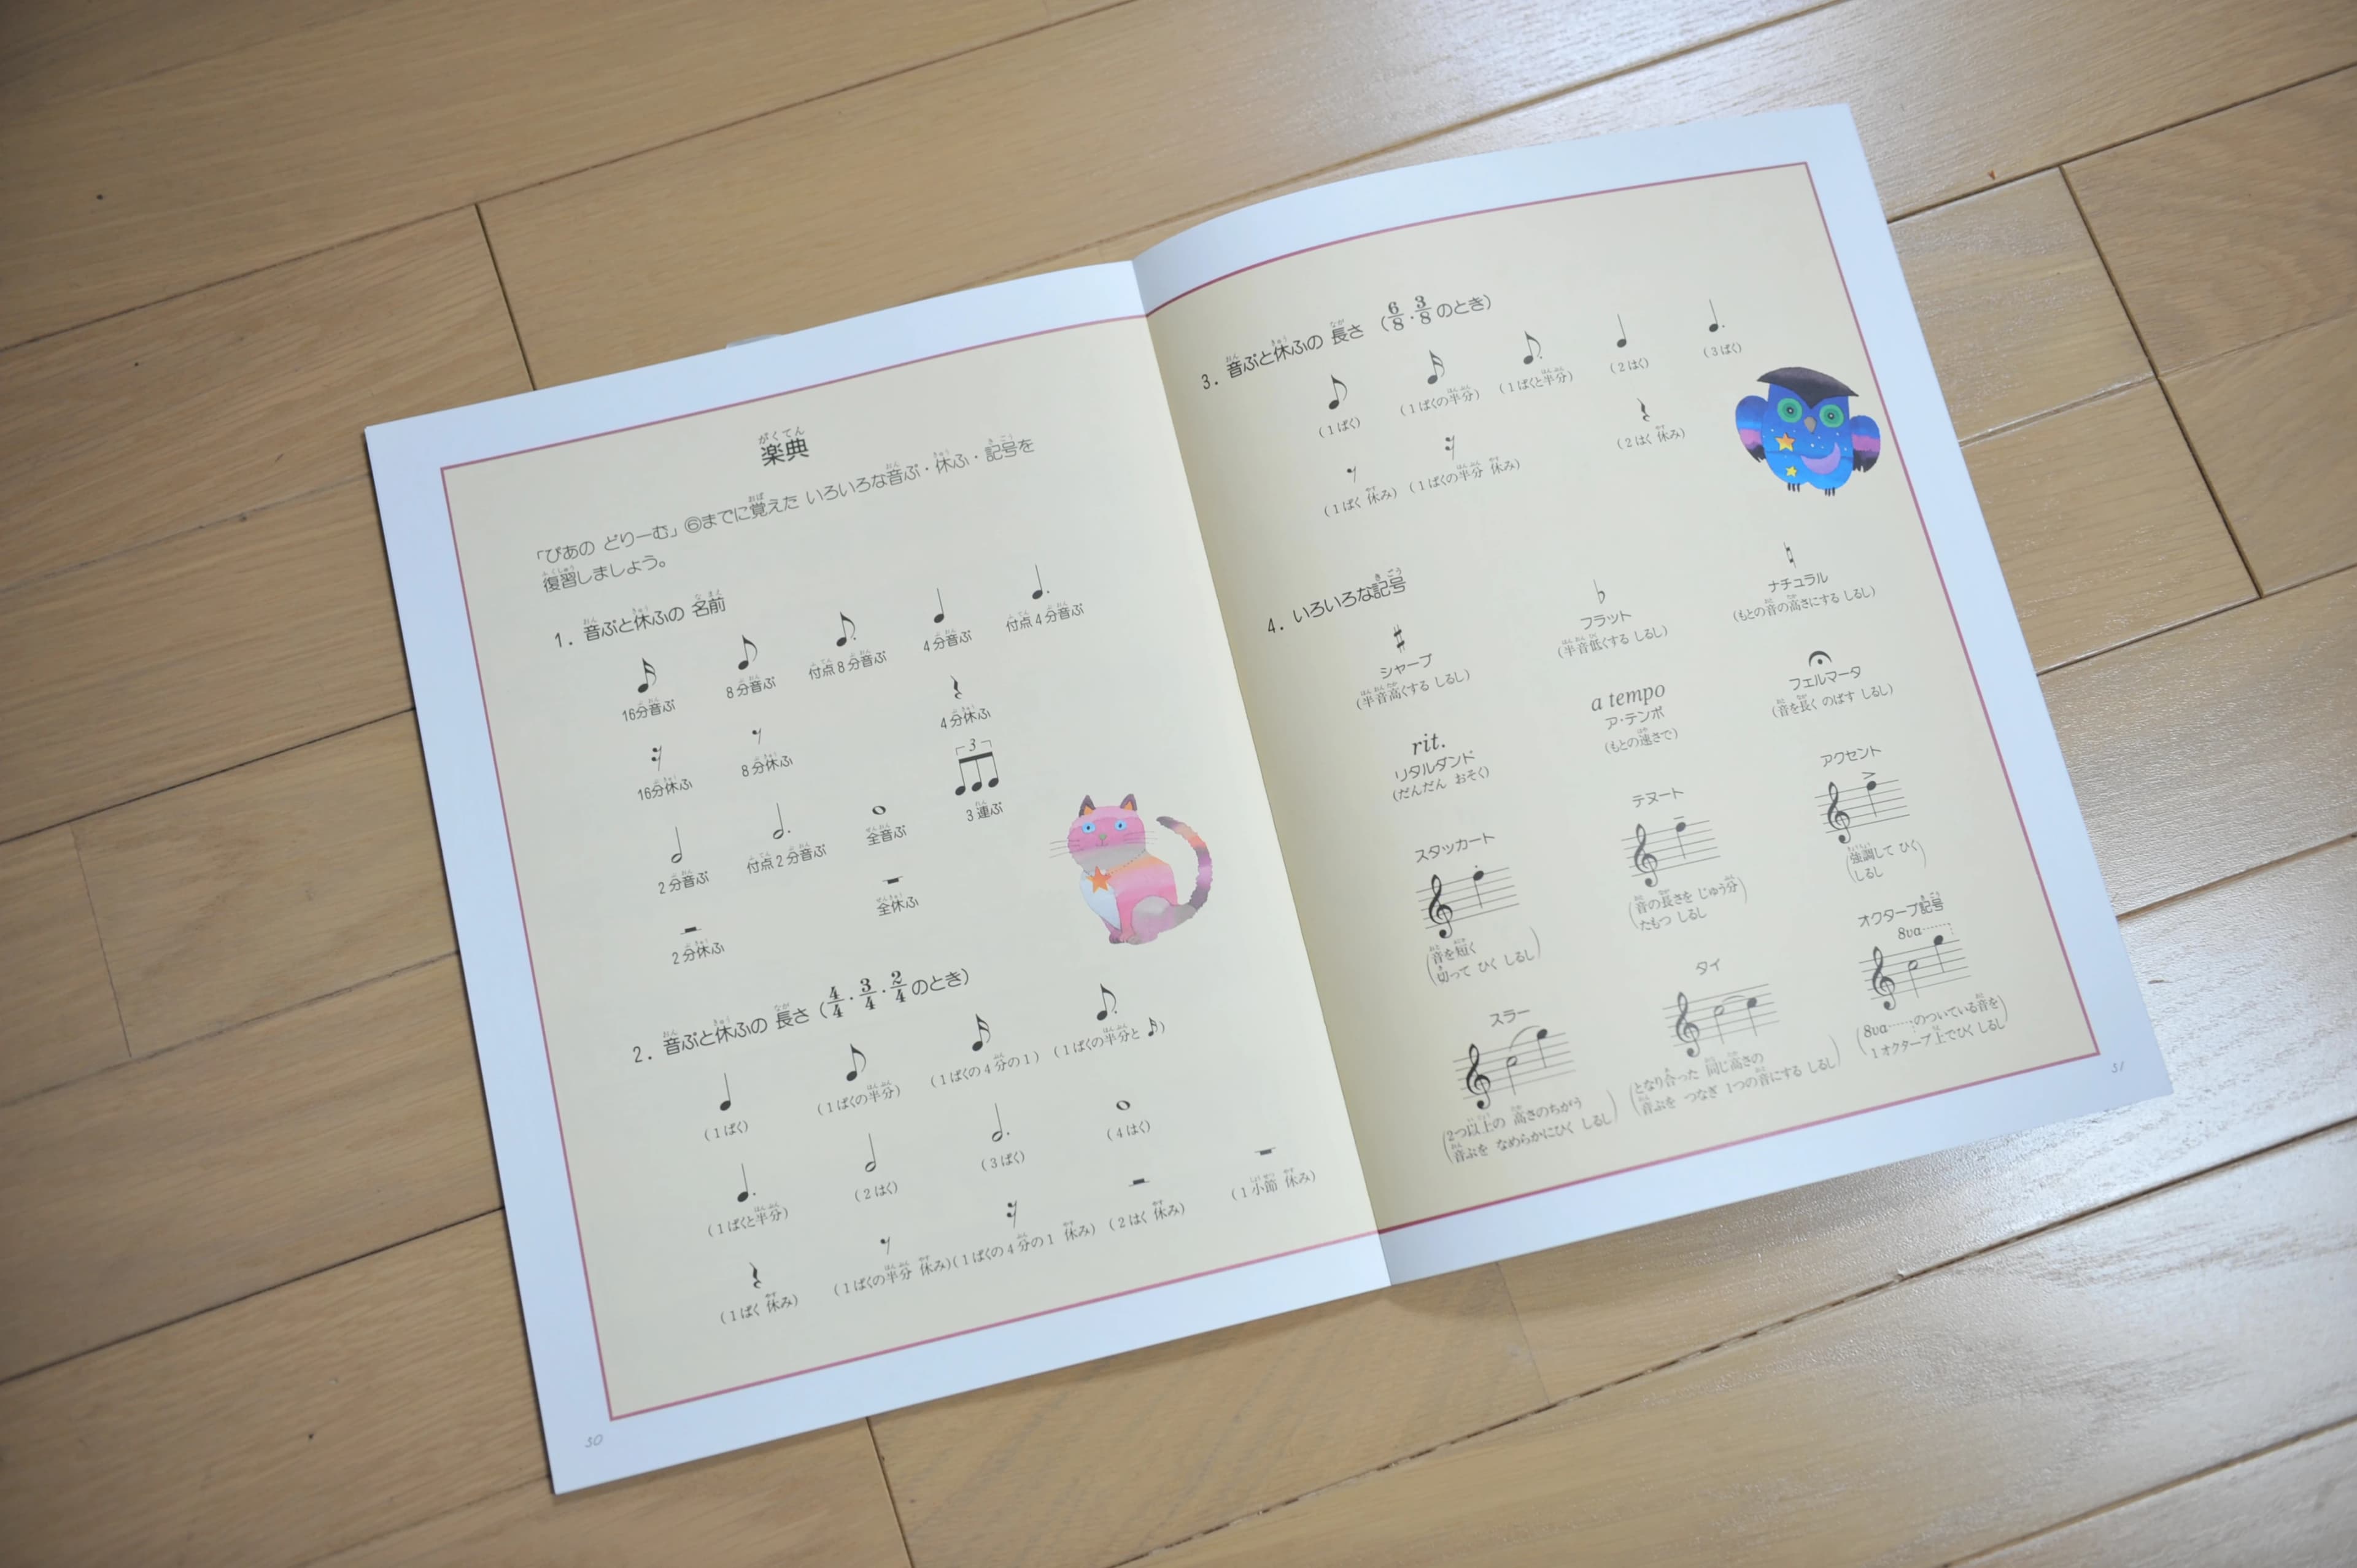 楽典
「ぴあの どりーむ」⑥までに覚えた いろいろな音ぷ・休ふ・記号を
復習しましょう。
1. 音ぷと休ふの 名前
16分音ぷ 8分音ぷ 付点8分音ぷ 4分音ぷ 付点4分音ぷ
16分休ふ 8分休ふ 4分休ふ
3
2分音ぷ 付点2分音ぷ 全音ぷ 3連ぷ
2分休ふ 全休ふ
2. 音ぷと休ふの 長さ (4/4・3/4・2/4のとき)
(1ぱく) (1ぱくの半分) (1ぱくの4分の1) (1ぱくの半分と𝅘𝅥𝅯)
(1ぱくと半分) (2はく) (3ぱく) (4はく)
(1ぱく 休み) (1ぱくの半分 休み) (1ぱくの4分の1 休み) (2はく 休み) (1小節 休み)
30
3. 音ぷと休ふの 長さ (6/8・3/8のとき)
(1ぱく) (1ぱくの半分) (1ぱくと半分) (2はく) (3ぱく)
(1ぱく 休み) (1ぱくの半分 休み) (2はく 休み)
4. いろいろな記号
シャープ フラット ナチュラル
(半音高くする しるし) (半音低くする しるし) (もとの音の高さにする しるし)
rit. a tempo
リタルダンド ア・テンポ フェルマータ
(だんだん おそく) (もとの速さで) (音を長く のばす しるし)
スタッカート テヌート アクセント
(音を短く
切って ひく しるし)
(音の長さを じゅう分
たもつ しるし)
(強調して ひく
しるし)
スラー タイ オクターブ記号
8va
(2つ以上の 高さのちがう
音ぷを なめらかにひく しるし)
(となり合った 同じ高さの
音ぷを つなぎ 1つの音にする しるし)
(8va……のついている音を
1オクターブ上でひく しるし)
31